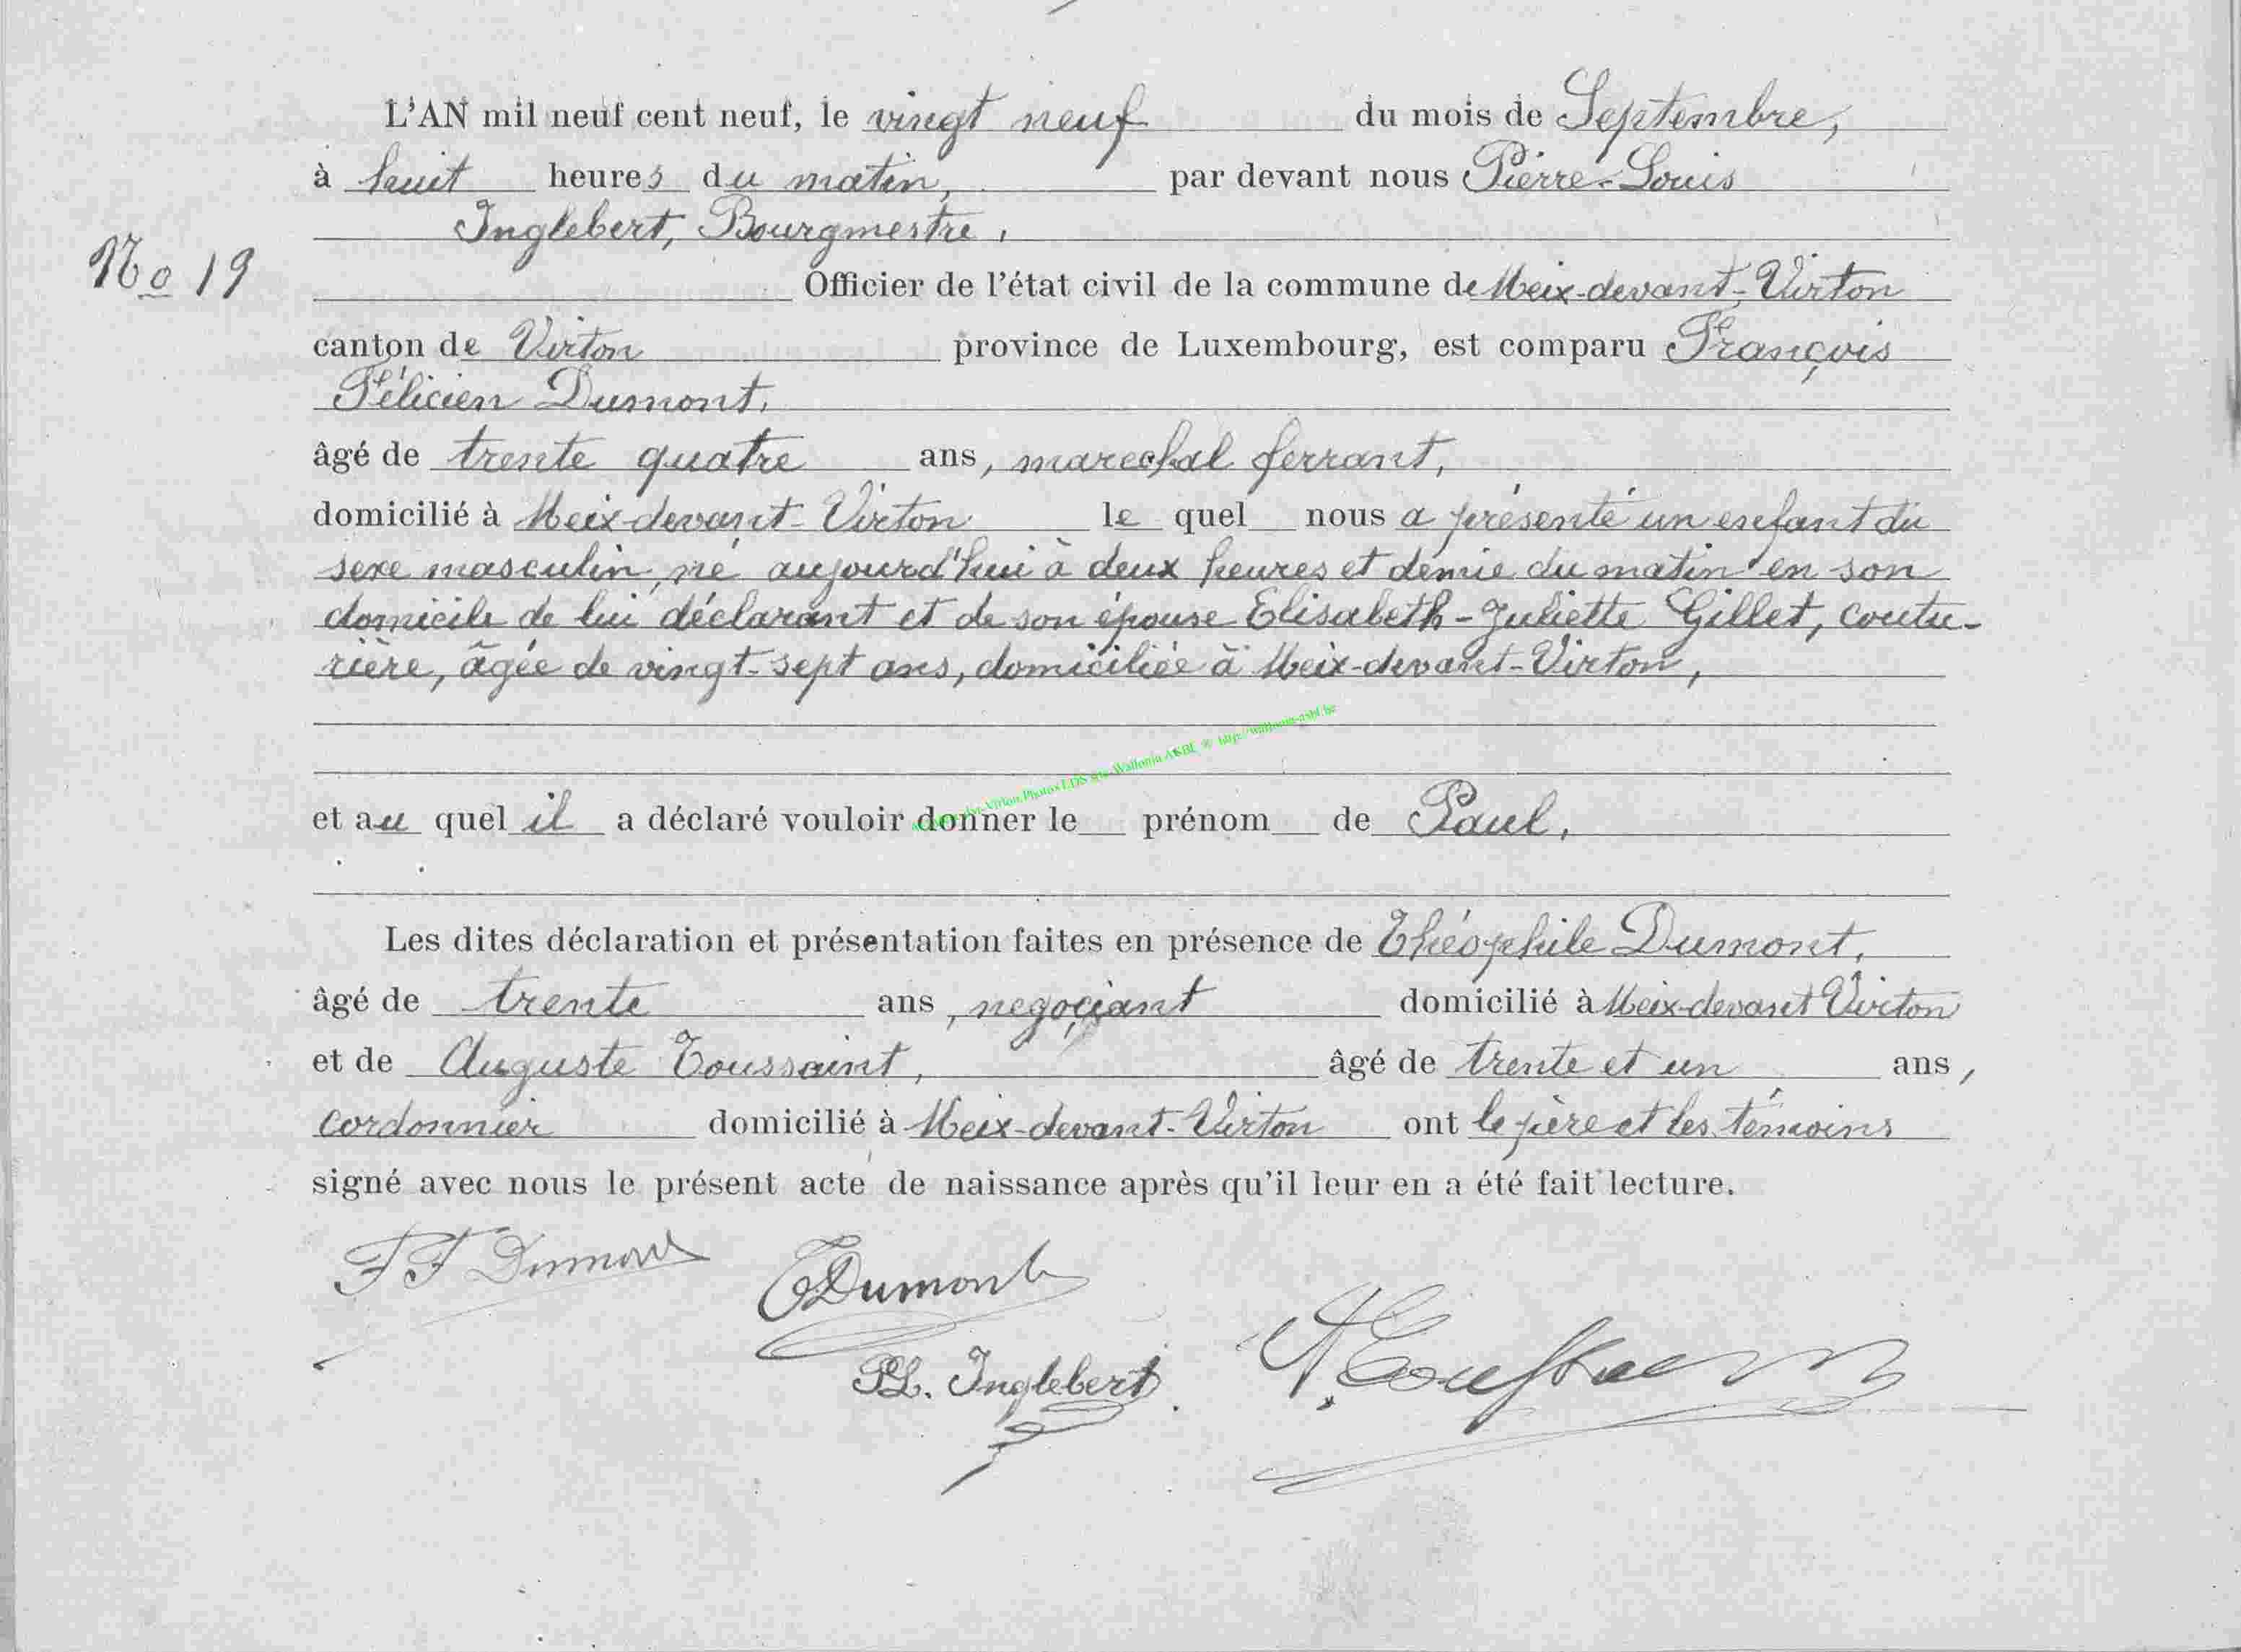 L'AN mil neuf cent neuf, le vingt neuf du mois de Septembre,
à huit heures du matin, par devant nous Pierre-Louis
Inglebert, Bourgmestre,
No 19
Officier de l'état civil de la commune de Meix-devant-Virton
canton de Virton province de Luxembourg, est comparu François
Félicien Dumont,
âgé de trente quatre ans, marechal ferrant,
domicilié à Meix-devant-Virton le quel nous a présenté un enfant du
sexe masculin, né aujourd'hui à deux heures et demie du matin en son
domicile de lui déclarant et de son épouse Elisabeth-Juliette Gillet, coutu-
rière, âgée de vingt-sept ans, domiciliée à Meix-devant-Virton,
et au quel il a déclaré vouloir donner le prénom de Paul,
Les dites déclaration et présentation faites en présence de Théophile Dumont,
âgé de trente ans, negoçiant domicilié à Meix-devant Virton
et de Auguste Toussaint, âgé de trente et un ans,
cordonnier domicilié à Meix-devant-Virton ont le père et les témoins
signé avec nous le présent acte de naissance après qu'il leur en a été fait lecture.
FF Dumont
TDumont
PL. Inglebert
A. Toussaint